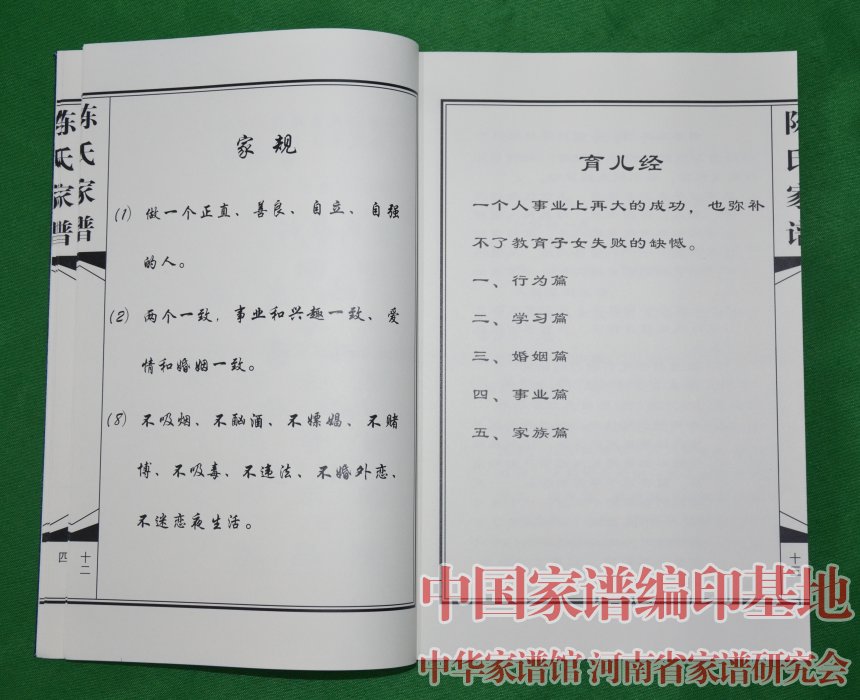 陈氏家谱
陈氏家谱
家规
(1) 做一个正直、善良、自立、自强
的人。
(2) 两个一致,事业和兴趣一致、爱
情和婚姻一致。
(8) 不吸烟、不酗酒、不嫖娼、不赌
博、不吸毒、不违法、不婚外恋、
不迷恋夜生活。
四
十二
育儿经
一个人事业上再大的成功，也弥补
不了教育子女失败的缺憾。
一、行为篇
二、学习篇
三、婚姻篇
四、事业篇
五、家族篇
陈氏家谱
中国家谱编印基地
中华家谱馆 河南省家谱研究会